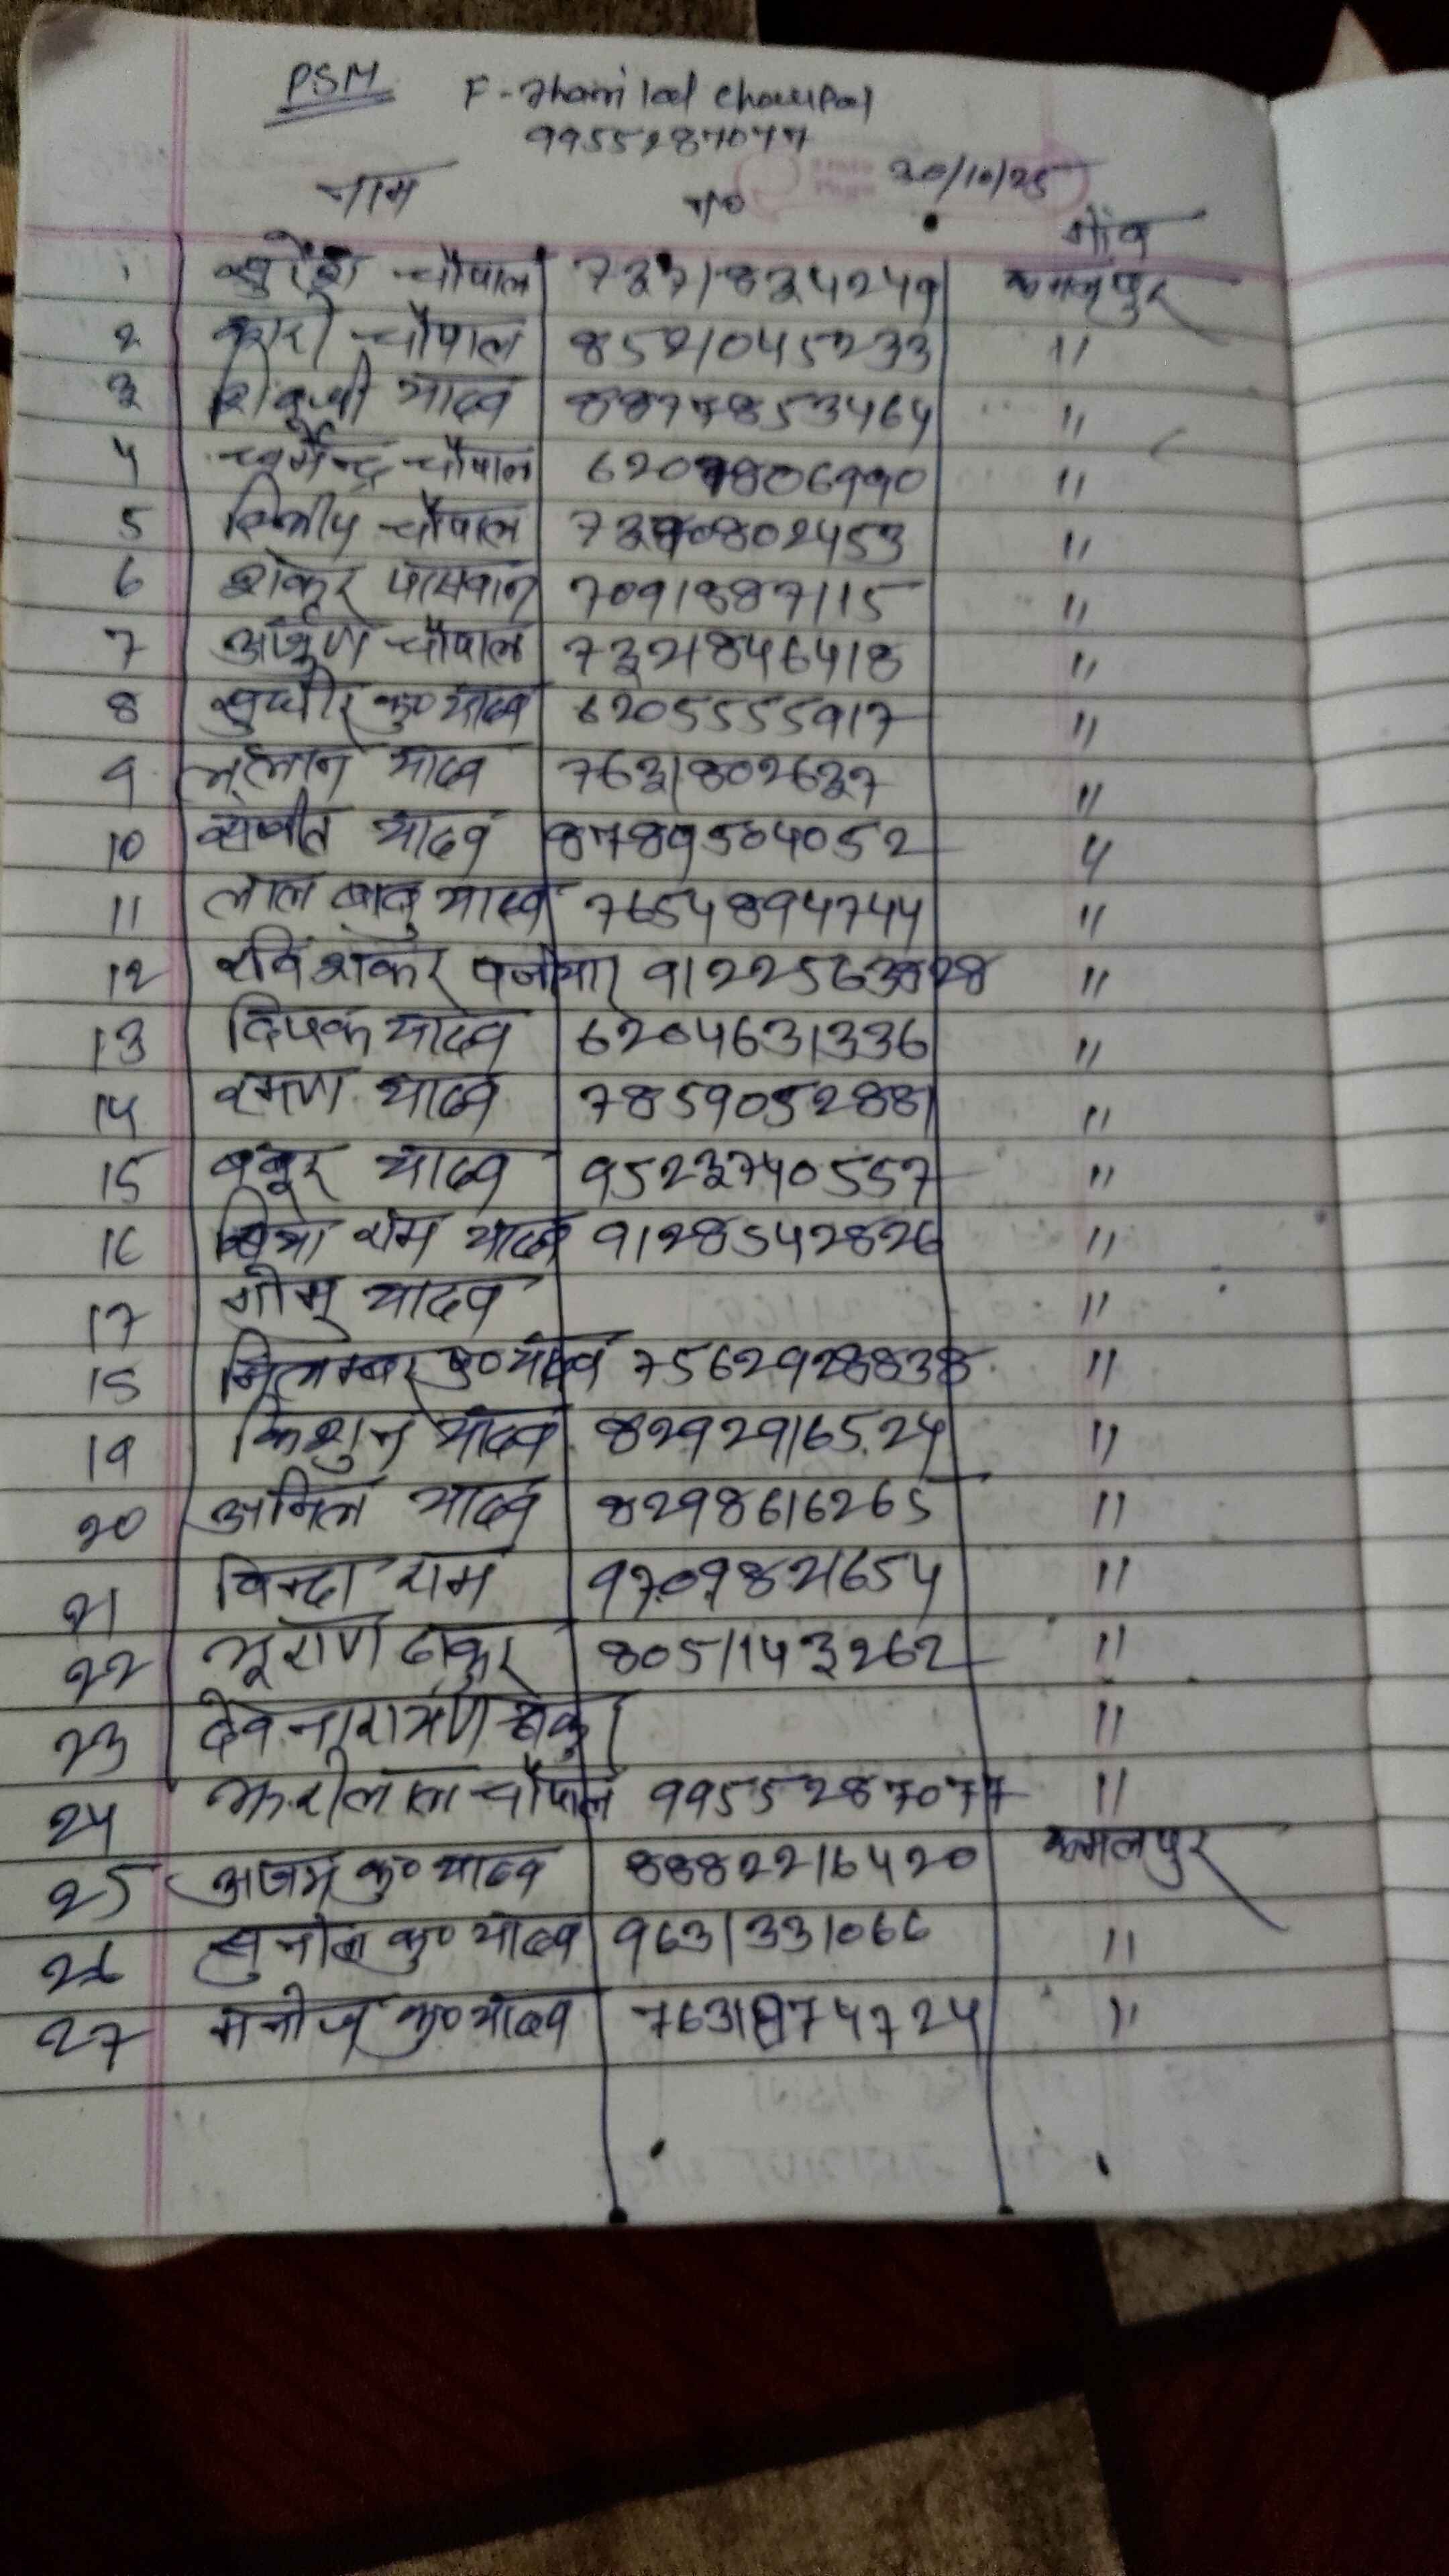 PSM F- Jhari lal Choupal
9955287077
नाम नं० 20/10/25
गाँव
1 सुरेश चौपाल 7371834249 कमलपुर
2 काशी चौपाल 8521045233 "
3 शिवजी यादव 8877853464 "
4 धर्मेन्द्र चौपाल 620 806990 "
5 दिलीप चौपाल 802453 "
6 शंकर पासवान 7091887115 "
7 अर्जुण चौपाल 7321846418 "
8 सुधीर कु० यादव 6205555917 "
9 ललान यादव 7631802627 "
10 यादव 8789504052 "
11 लाल बाबु यादव 7654894744 "
12 रवि शंकर पजीयार 9122563828 "
13 दिपक यादव 6204631336 "
14 रमण यादव 7859052881 "
15 बबूर यादव 9523740557 "
16 सिया राम यादव 9128542826 "
17 गोमू यादव "
18 कु० यादव 7562928838 "
19 किशुन यादव 8292916524 "
20 अनिल यादव 8298616265 "
21 विन्दा राम 9709821654 "
22 भूषण ठाकुर 8051143262 "
23 देव नारायण ठाकुर "
24 झरीलाल चौपाल 9955287077 "
25 अजय कु० यादव 8882216420 कमलपुर
26 कु० यादव 9631331066 "
27 मनोज कु० यादव 7631874724 "